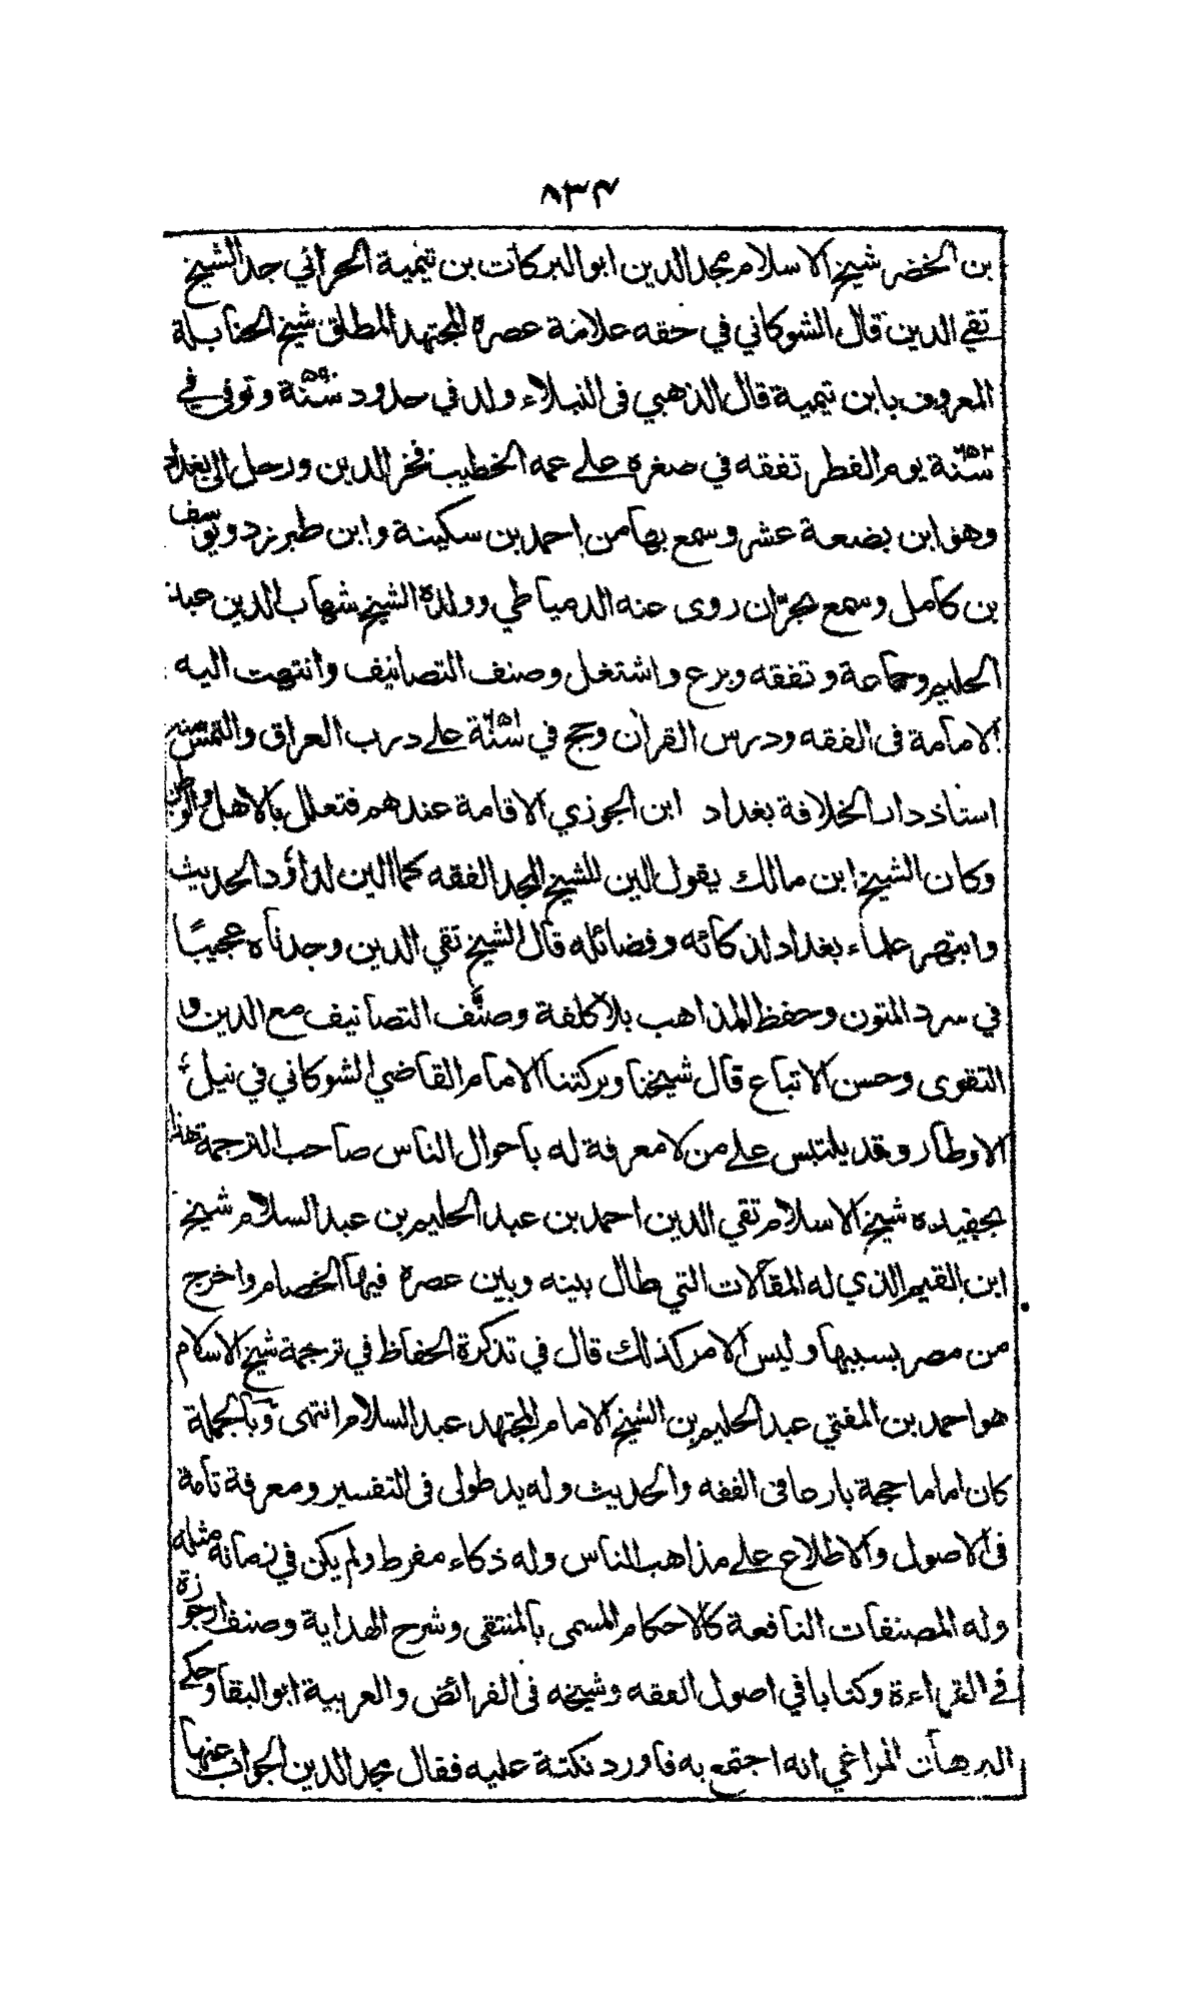 ۸۳۴
بن الخضر شيخ الاسلام مجد الدين ابو البركات بن تيمية الحراني جد الشيخ
تقي الدين قال الشوكاني في حقه علامة عصره المجتهد المطلق شيخ الحنابلة
المعروف بابن تيمية قال الذهبي فى النبلاء ولد في حدود سنة ۵۹۰ وتوفي في
سنة ۶۵۲ يوم الفطر تفقه في صغره على عمه الخطيب فخر الدين ورحل الى بغداد
وهو ابن بضعة عشر وسمع بها من احمد بن سكينة وابن طبرزد ويوسف
بن كامل وسمع بحران روى عنه الدمياطي وولده الشيخ شهاب الدين عبد
الحليم وجماعة وتفقه وبرع واشتغل وصنف التصانيف وانتهت اليه
الامامة فى الفقه ودرس القران وحج في سنة ۶۵۱ على درب العراق والتمس منه
استاذ دار الخلافة بغداد ابن الجوزي الاقامة عندهم فتعلل بالاهل والوطن
وكان الشيخ ابن مالك يقول الين للشيخ المجد الفقه كما الين لداؤد الحديث
وابتهر علماء بغداد لذكائه وفضائله قال الشيخ تقي الدين وجدناه عجيبًا
في سرد المتون وحفظ المذاهب بلا كلفة وصنَّف التصانيف مع الدين و
التقوى وحسن الاتباع قال شيخنا وبركتنا الامام القاضي الشوكاني في نيل
الاوطار وقد يلتبس على من لا معرفة له باحوال الناس صاحب الترجمة هذا
بحفيده شيخ الاسلام تقي الدين احمد بن عبد الحليم بن عبد السلام شيخ
ابن القيم الذي له المقالات التي طال بينه وبين عصره فيها الخصام واخرج
من مصر بسببها وليس الامر كذلك قال في تذكرة الحفاظ في ترجمة شيخ الاسلام
هو احمد بن المفتي عبد الحليم بن الشيخ الامام المجتهد عبد السلام انتهى وبالجملة
كان اماما حجة بارعا فى الفقه والحديث وله يد طولى فى التفسير ومعرفة تامة
فى الاصول والاطلاع على مذاهب الناس وله ذكاء مفرط ولم يكن في زمانه مثله
وله المصنفات النافعة كالاحكام المسمى بالمنتقى وشرح الهداية وصنف ارجوزة
في القراءة وكتابا في اصول الفقه وشيخه فى الفرائض والعربية ابو البقا وحكى
البرهان المراغي انه اجتمع به فاورد نكتة عليه فقال مجد الدين الجواب عنها